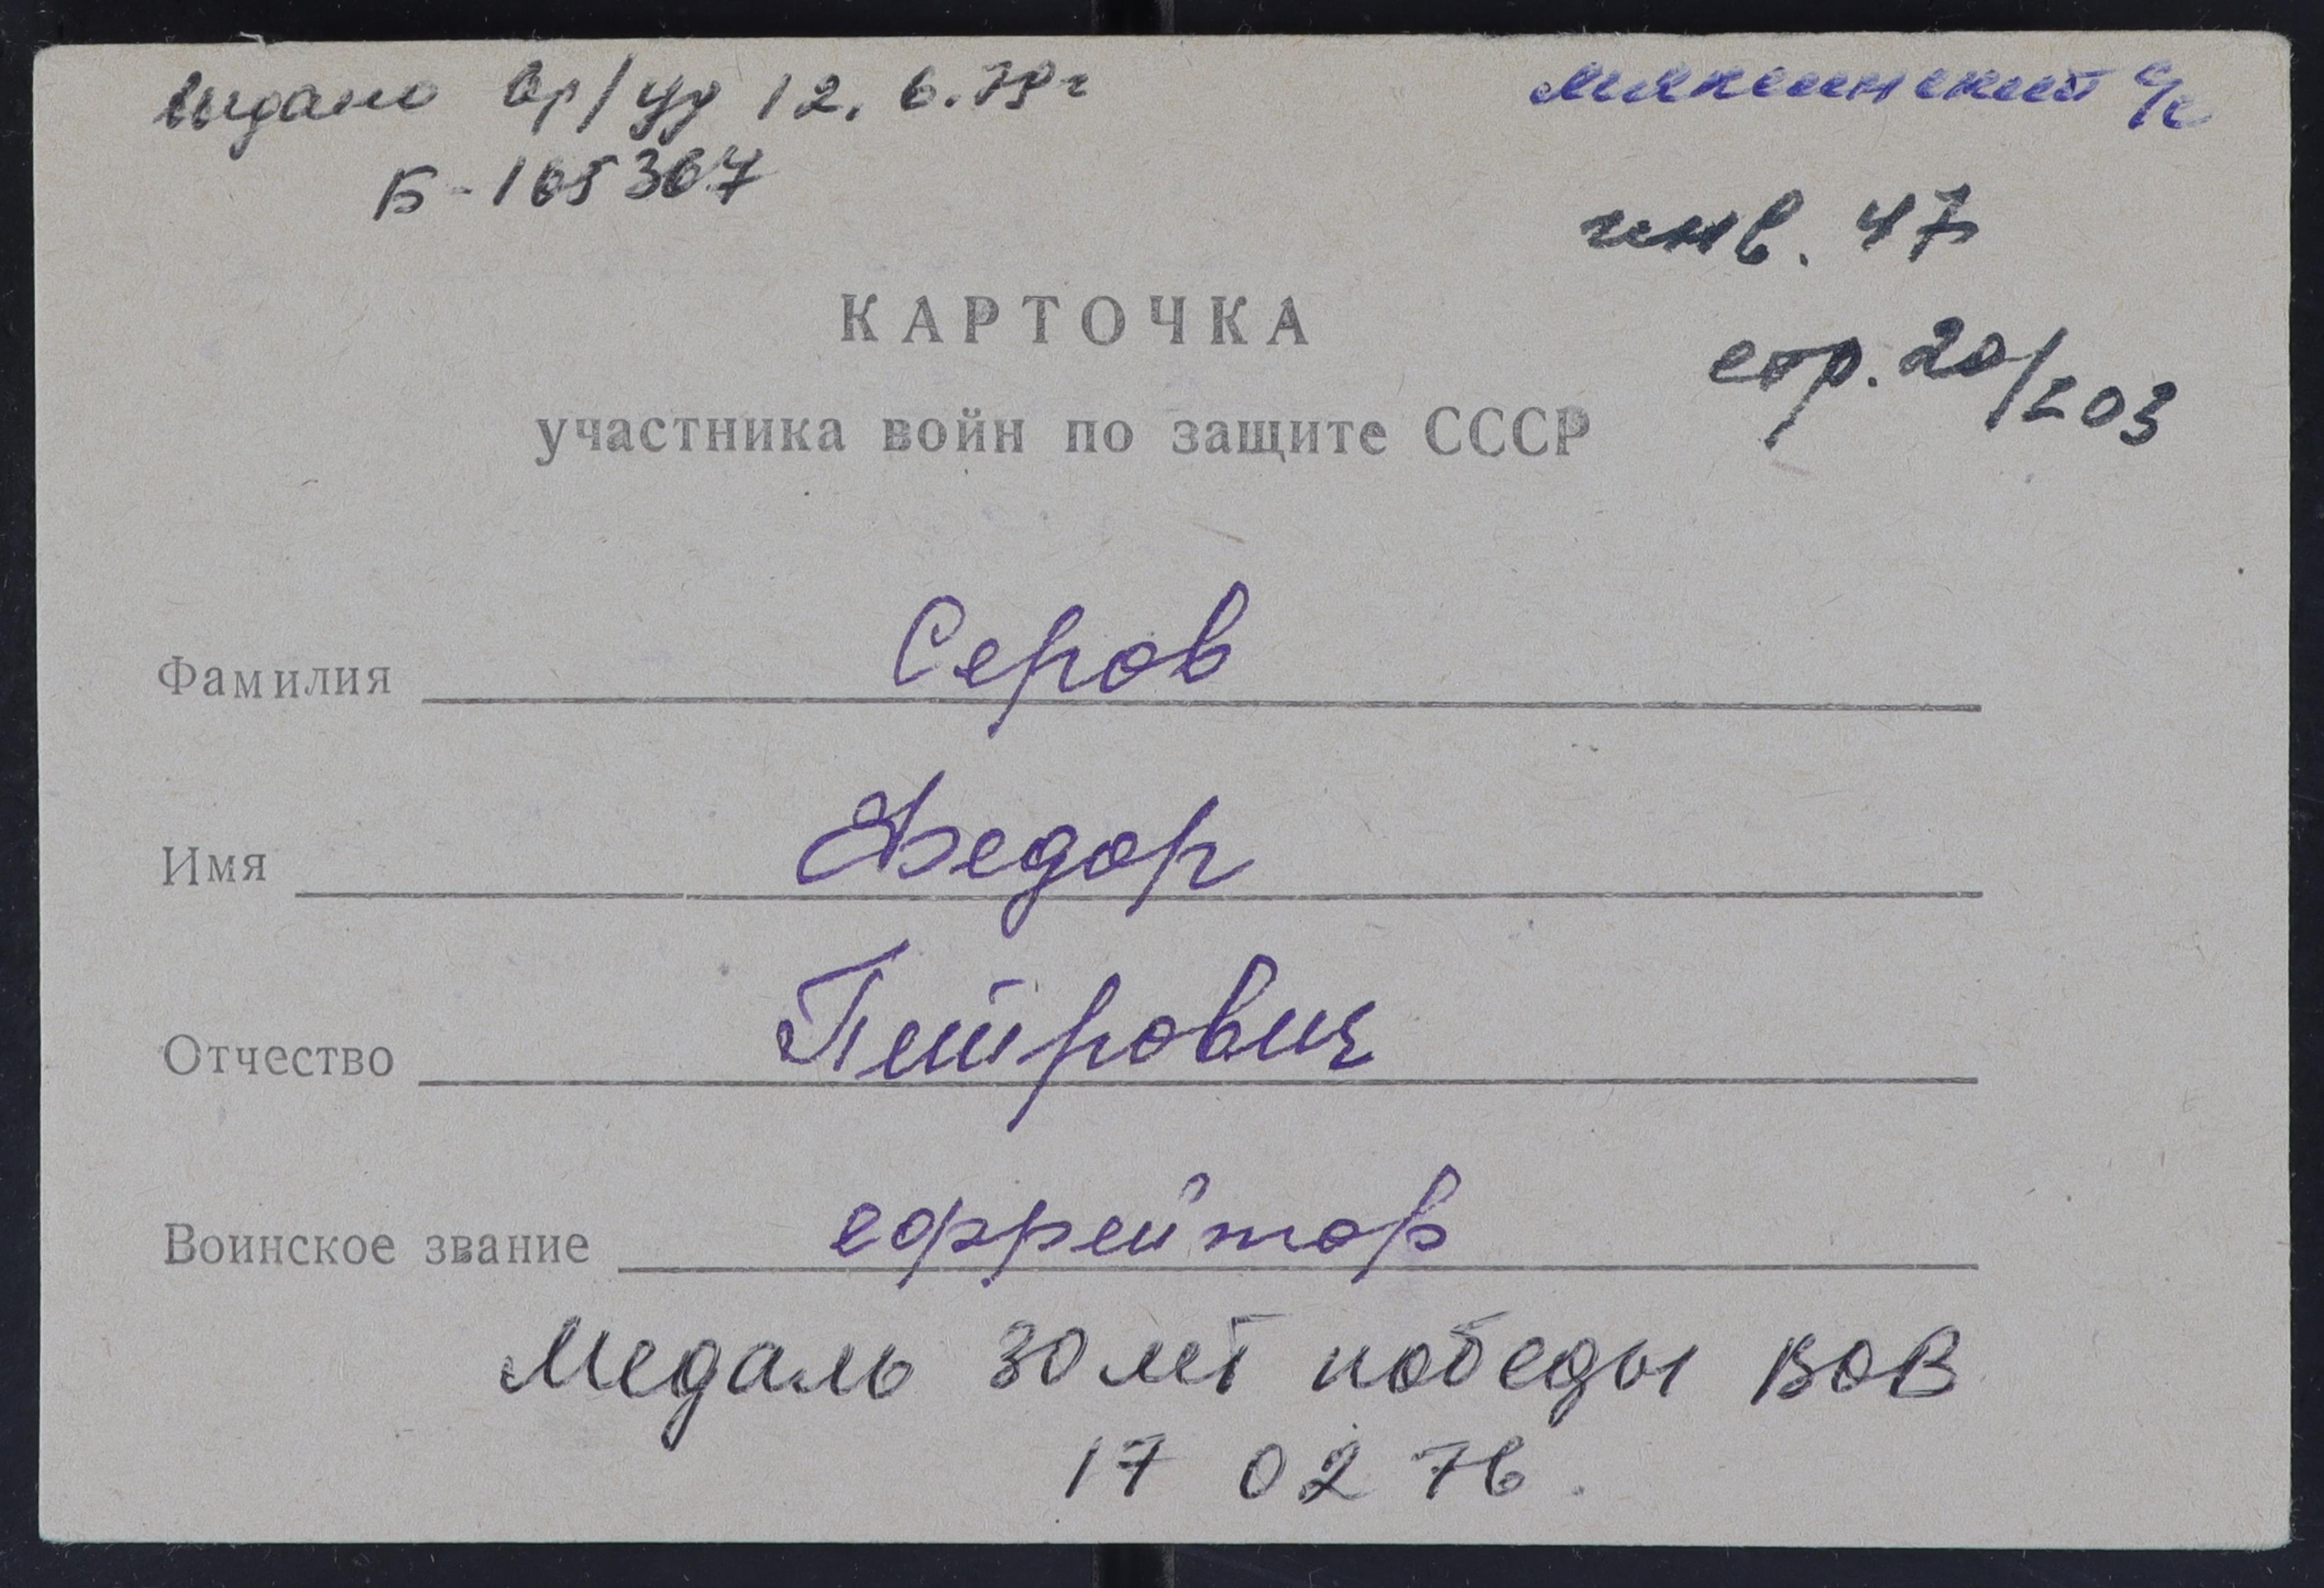 выдано вр/уд 12.6.79г
Б-165367
Мякшинский с/с
инв. 47
стр. 20/203
КАРТОЧКА
участника войн по защите СССР
Фамилия Серов
Имя Федор
Отчество Петрович
Воинское звание ефрейтор
Медаль 30 лет победы ВОВ
17 02 76.